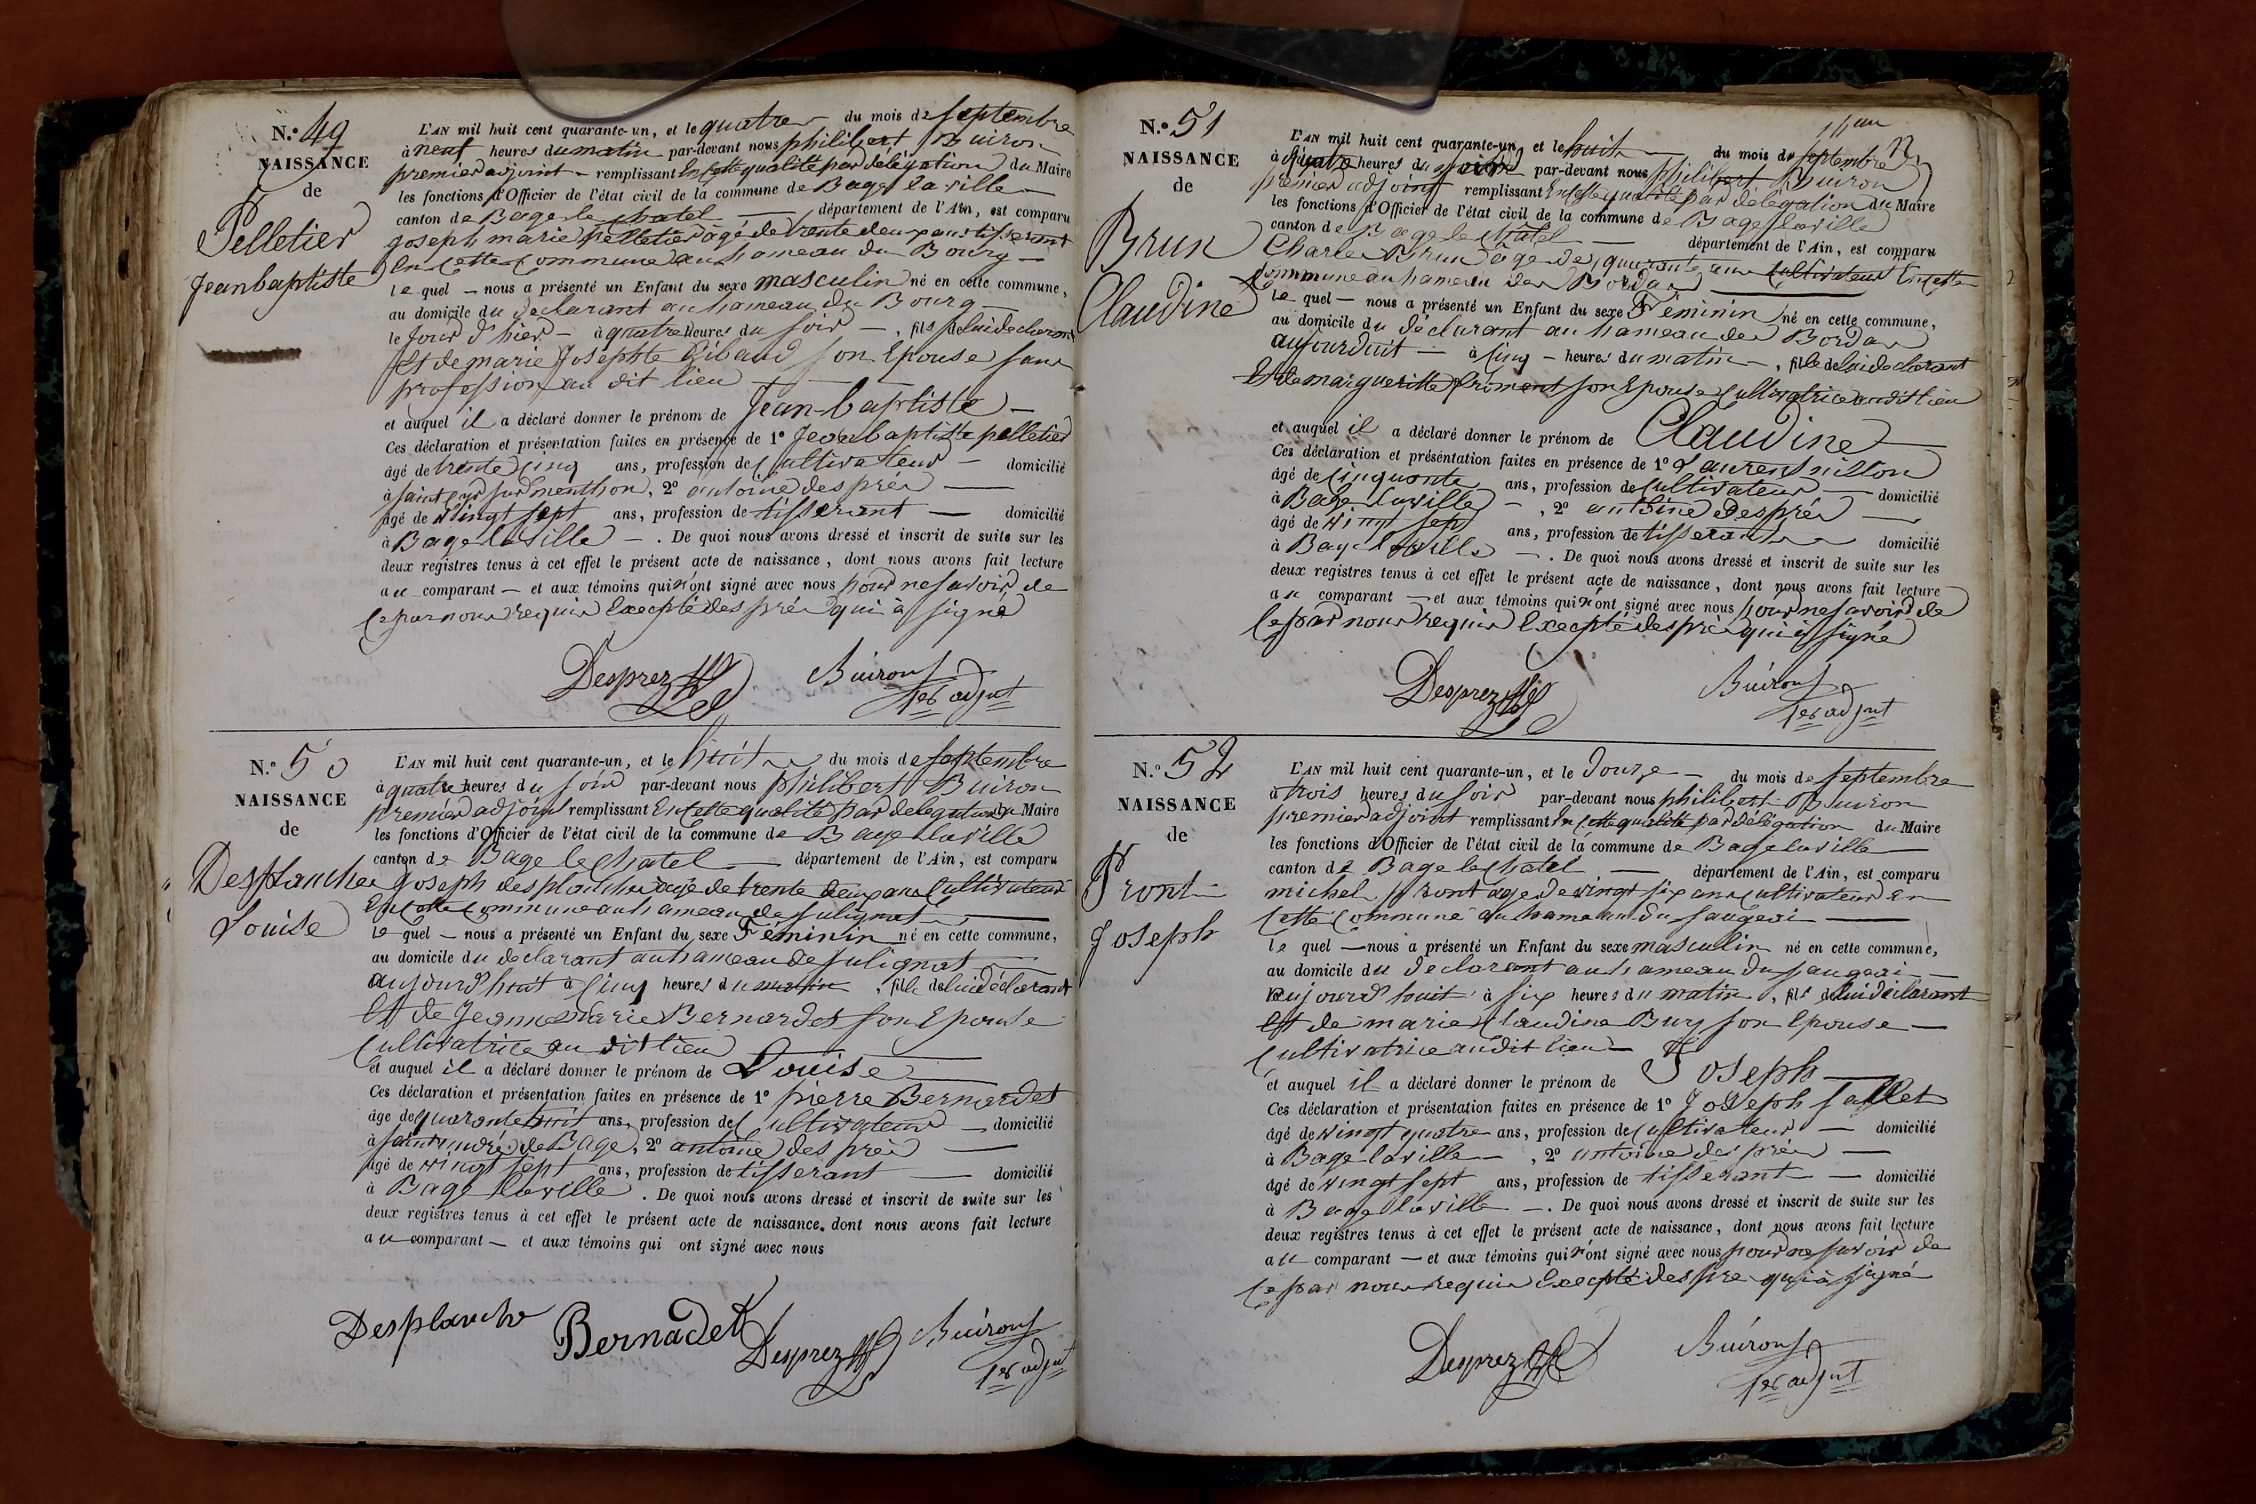 N.° 49
NAISSANCE
de
Pelletier
Jean baptiste
L'AN mil huit cent quarante-un, et le quatre du mois de septembre
à neuf heures du matin par-devant nous philibert Buiron
premier adjoint remplissant En cette qualité par délégation du Maire
les fonctions d'Officier de l'état civil de la commune de Bage la ville
canton de Bage le chatel département de l'Ain, est comparu
joseph marie pelletier âgé de trente deux ans tisserant
En cette commune au hameau du Bourg
le quel nous a présenté un Enfant du sexe masculin né en cette commune,
au domicile du declarant au hameau du Bourg
le Jour d'hier à quatre heures du soir , fils de lui declarant
Et de marie Josephte Gibaud son Epouse sans
profession au dit lieu
et auquel il a déclaré donner le prénom de Jean-baptiste
Ces déclaration et présentation faites en présence de 1° Jean baptiste pelletier
âgé de trente cinq ans, profession de Cultivateur domicilié
à saint cyr sur menthon, 2° antoine des prés
âgé de vingt sept ans, profession de tisserant domicilié
à Bage la ville . De quoi nous avons dressé et inscrit de suite sur les
deux registres tenus à cet effet le présent acte de naissance, dont nous avons fait lecture
au comparant et aux témoins qui n'ont signé avec nous pour ne savoir de
Ce par nous requis Excepté des prés qui à signé
Desprez Buiron
1er adjnt
N.° 50
NAISSANCE
de
Desplanche
Louise
L'AN mil huit cent quarante-un, et le huit du mois de septembre
à quatre heures du soir par-devant nous philibert Buiron
premier adjoint remplissant En cette qualité par delegation du Maire
les fonctions d'Officier de l'état civil de la commune de Bage la ville
canton de Bage le chatel département de l'Ain, est comparu
joseph desplanche âgé de trente deux ans Cultivateur
En cette Commune au hameau de sulignat
le quel nous a présenté un Enfant du sexe Féminin né en cette commune,
au domicile du declarant au hameau de sulignat
aujourd'huit à Cinq heures du matin , fille de lui déclarant
Et de Jeanne Marie Bernardet son Epouse
Cultivatrice au dit lieu
et auquel il a déclaré donner le prénom de Louise
Ces déclaration et présentation faites en présence de 1° pierre Bernardet
âgé de quarante huit ans, profession de Cultivateur domicilié
à saint andré de Bage, 2° antoine des prés
âgé de vingt sept ans, profession de tisserant domicilié
à Bage la ville . De quoi nous avons dressé et inscrit de suite sur les
deux registres tenus à cet effet le présent acte de naissance, dont nous avons fait lecture
au comparant et aux témoins qui ont signé avec nous
Desplanche Bernadet Desprez Buiron
1er adjnt
N.° 51
NAISSANCE
de
Brun
Claudine
L'AN mil huit cent quarante-un, et le huit du mois de septembre
à quatre heures du soir par-devant nous philibert Buiron
premier adjoint remplissant En cette qualité par délégation du Maire
les fonctions d'Officier de l'état civil de la commune de Bage la ville
canton de Bage le chatel département de l'Ain, est comparu
Charles Brun âgé de quarante un ans Cultivateur En cette
Commune au hameau des Bordes
le quel nous a présenté un Enfant du sexe Féminin né en cette commune,
au domicile du déclarant au hameau des Bordes
aujourduit à Cinq heures du matin , fille de lui declarant
Et de margueritte froment son Epouse Cultivatrice au dit lieu
et auquel il a déclaré donner le prénom de Claudine
Ces déclaration et présentation faites en présence de 1° Laurent nillon
âgé de Cinquante ans, profession de Cultivateur domicilié
à Bage la ville , 2° antoine des prés
âgé de vingt sept ans, profession de tisserant domicilié
à Bage la ville . De quoi nous avons dressé et inscrit de suite sur les
deux registres tenus à cet effet le présent acte de naissance, dont nous avons fait lecture
au comparant et aux témoins qui n'ont signé avec nous pour ne savoir de
Ce par nous requis Excepté des prés qui à signé
Desprez Buiron
1er adjnt
N.° 52
NAISSANCE
de
Pront
Joseph
L'AN mil huit cent quarante-un, et le Douze du mois de septembre
à trois heures du soir par-devant nous philibert Buiron
premier adjoint remplissant En cette qualité par délégation du Maire
les fonctions d'Officier de l'état civil de la commune de Bage la ville
canton de Bage le chatel département de l'Ain, est comparu
michel pront âgé de vingt six ans Cultivateur En
Cette Commune au hameau du saugeai
le quel nous a présenté un Enfant du sexe masculin né en cette commune,
au domicile du declarant au hameau du saugeai
aujourd'huit à six heures du matin , fils de lui déclarant
Et de marie Claudine Buy son Epouse
Cultivatrice au dit lieu
et auquel il a déclaré donner le prénom de Joseph
Ces déclaration et présentation faites en présence de 1° Joseph sallet
âgé de vingt quatre ans, profession de Cultivateur domicilié
à Bage la ville , 2° antoine des prés
âgé de vingt sept ans, profession de tisserant domicilié
à Bage la ville . De quoi nous avons dressé et inscrit de suite sur les
deux registres tenus à cet effet le présent acte de naissance, dont nous avons fait lecture
au comparant et aux témoins qui n'ont signé avec nous pour ne savoir de
Ce par nous requis Excepté des pre qui à signé
Desprez Buiron
1er adjnt